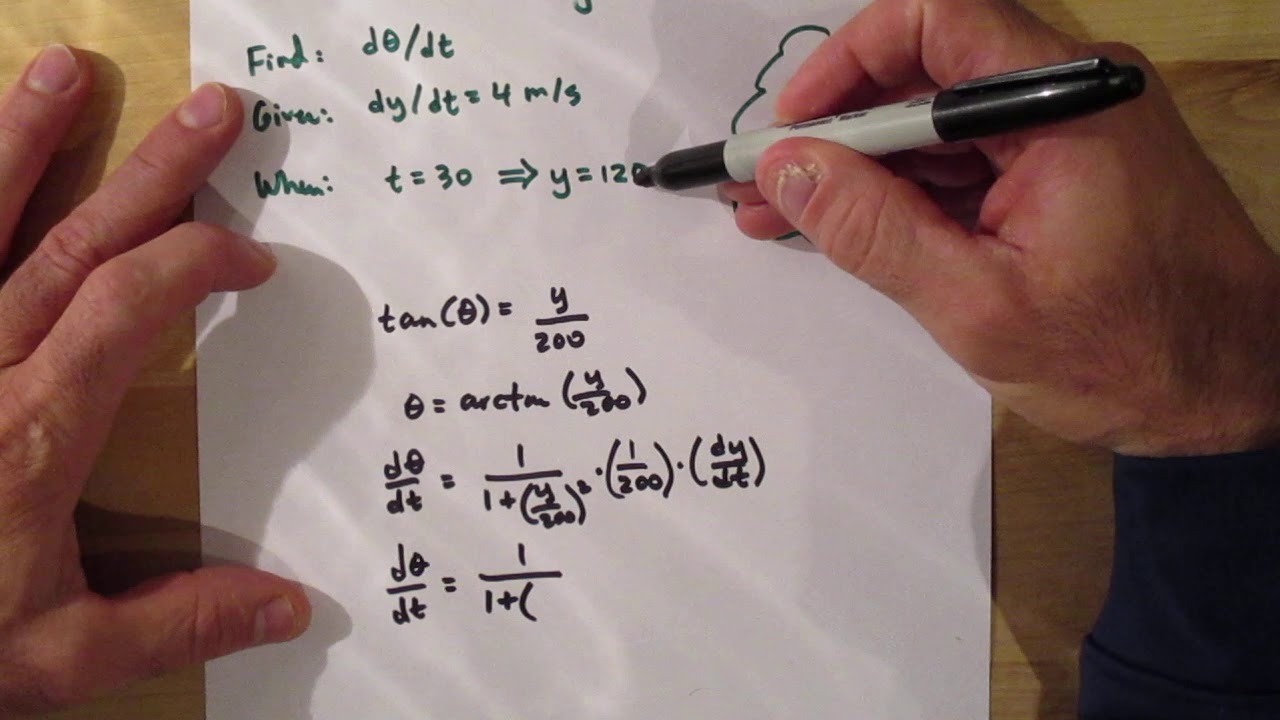 Find: dθ/dt
Given: dy/dt = 4 m/s
When: t = 30 ⇒ y = 120
tan(θ) = y/200
θ = arctan (y/200)
dθ/dt = 1/(1+(y/200)²) · (1/200) · (dy/dt)
dθ/dt = 1/(1+(
Permanent Marker